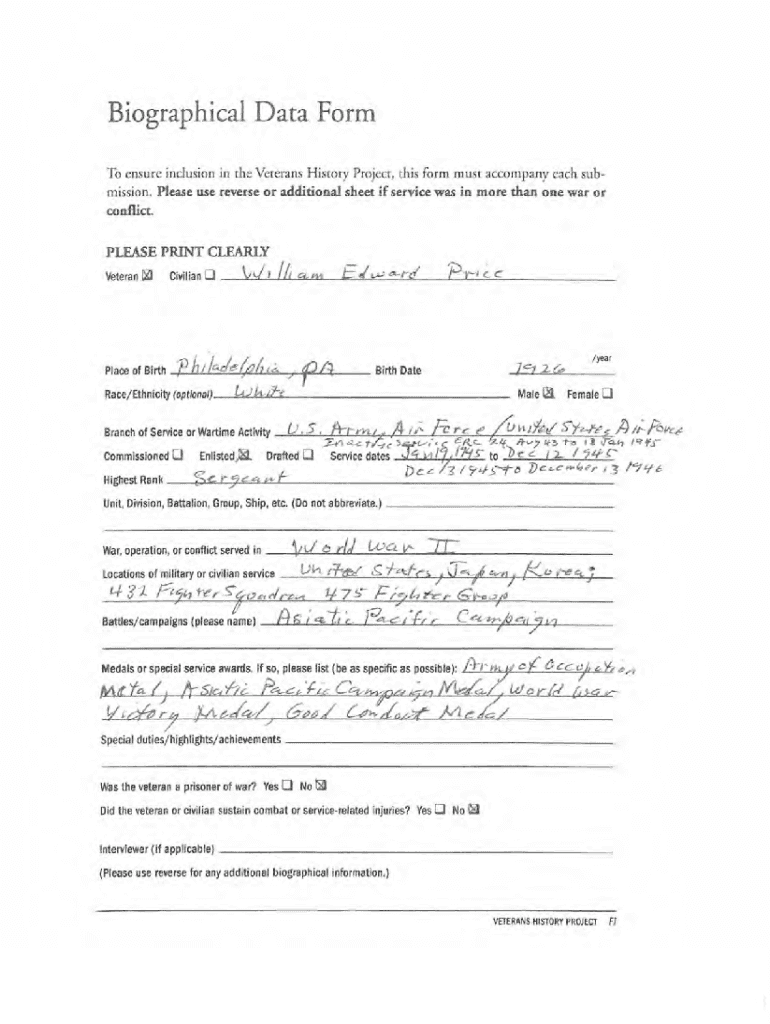 Biographical Data Form
To ensure inclusion in the Veterans History Project, this form must accompany each sub-
mission. Please use reverse or additional sheet if service was in more than one war or
conflict.
PLEASE PRINT CLEARLY
Veteran ☒ Civilian ☐ William Edward Price
/year
Place of Birth Philadelphia, PA Birth Date 1926
Race/Ethnicity (optional) White Male ☒ Female ☐
Branch of Service or Wartime Activity U.S. Army Air Force / United States Air Force
Inactive service ERC 24 Aug 43 to 18 Jan 1945
Commissioned ☐ Enlisted ☒ Drafted ☐ Service dates Jan 19, 1945 to Dec 12 1945
Dec 13 1945 to December 13 1946
Highest Rank Sergeant
Unit, Division, Battalion, Group, Ship, etc. (Do not abbreviate.)
War, operation, or conflict served in World War II
Locations of military or civilian service United States, Japan, Korea;
432 Fighter Squadron 475 Fighter Group
Battles/campaigns (please name) Asiatic Pacific Campaign
Medals or special service awards. If so, please list (be as specific as possible): Army of Occupation
Metal, Asiatic Pacific Campaign Medal, World War
Victory Medal, Good Conduct Medal
Special duties/highlights/achievements
Was the veteran a prisoner of war? Yes ☐ No ☒
Did the veteran or civilian sustain combat or service-related injuries? Yes ☐ No ☒
Interviewer (if applicable)
(Please use reverse for any additional biographical information.)
VETERANS HISTORY PROJECT